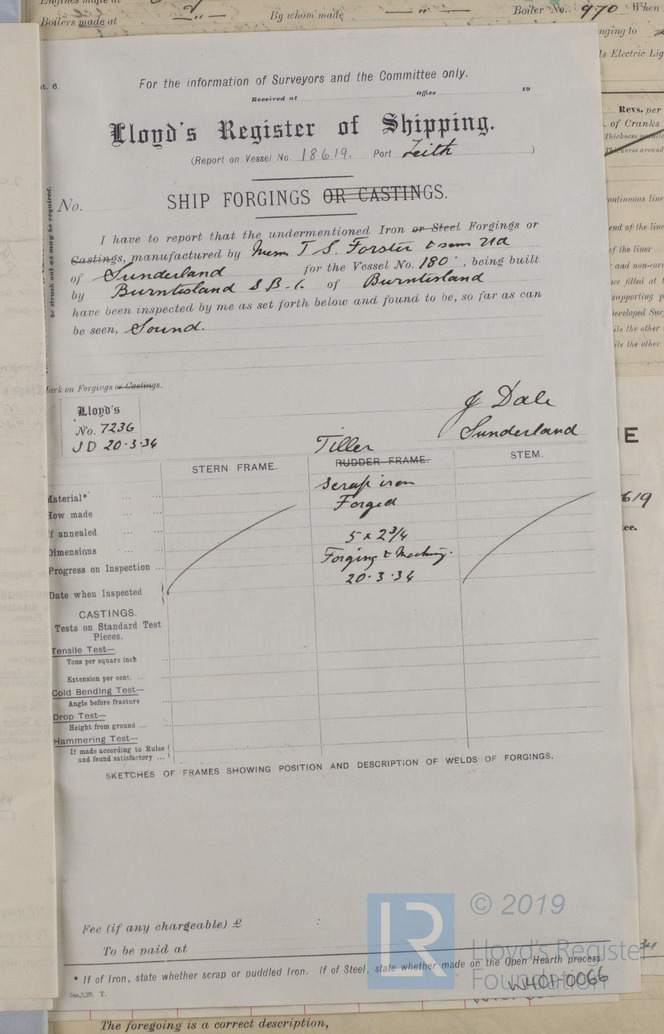 Boilers made at
By whom made
Boiler No. 970 When
For the information of Surveyors and the Committee only.
Received at Office 19
Lloyd's Register of Shipping.
(Report on Vessel No. 18619. Port Leith )
No.
SHIP FORGINGS OR CASTINGS.
I have to report that the undermentioned Iron or Steel Forgings or
Castings, manufactured by Messrs T S. Forster & sons Ltd
of Sunderland for the Vessel No. 180, being built
by Burntisland S B. C. of Burntisland
have been inspected by me as set forth below and found to be, so far as can
be seen, Sound.
Mark on Forgings or Castings.
Lloyd's
No. 7236
J D 20-3-34
J Dale
Sunderland
Tiller
STERN FRAME. RUDDER FRAME. STEM.
Material* Scrap iron
How made Forged
If annealed
Dimensions 5 x 2 3/4
Progress on Inspection Forging & Machng.
Date when Inspected 20.3.34
CASTINGS.
Tests on Standard Test
Pieces.
Tensile Test—
Tons per square inch
Extension per cent.
Cold Bending Test—
Angle before fracture
Drop Test—
Height from ground
Hammering Test—
If made according to Rules
and found satisfactory
SKETCHES OF FRAMES SHOWING POSITION AND DESCRIPTION OF WELDS OF FORGINGS.
Fee (if any chargeable) £ :
To be paid at
* If of Iron, state whether scrap or puddled Iron. If of Steel, state whether made on the Open Hearth process.
© 2019
LR
Lloyd's Register
Foundation
W401-0066
The foregoing is a correct description,